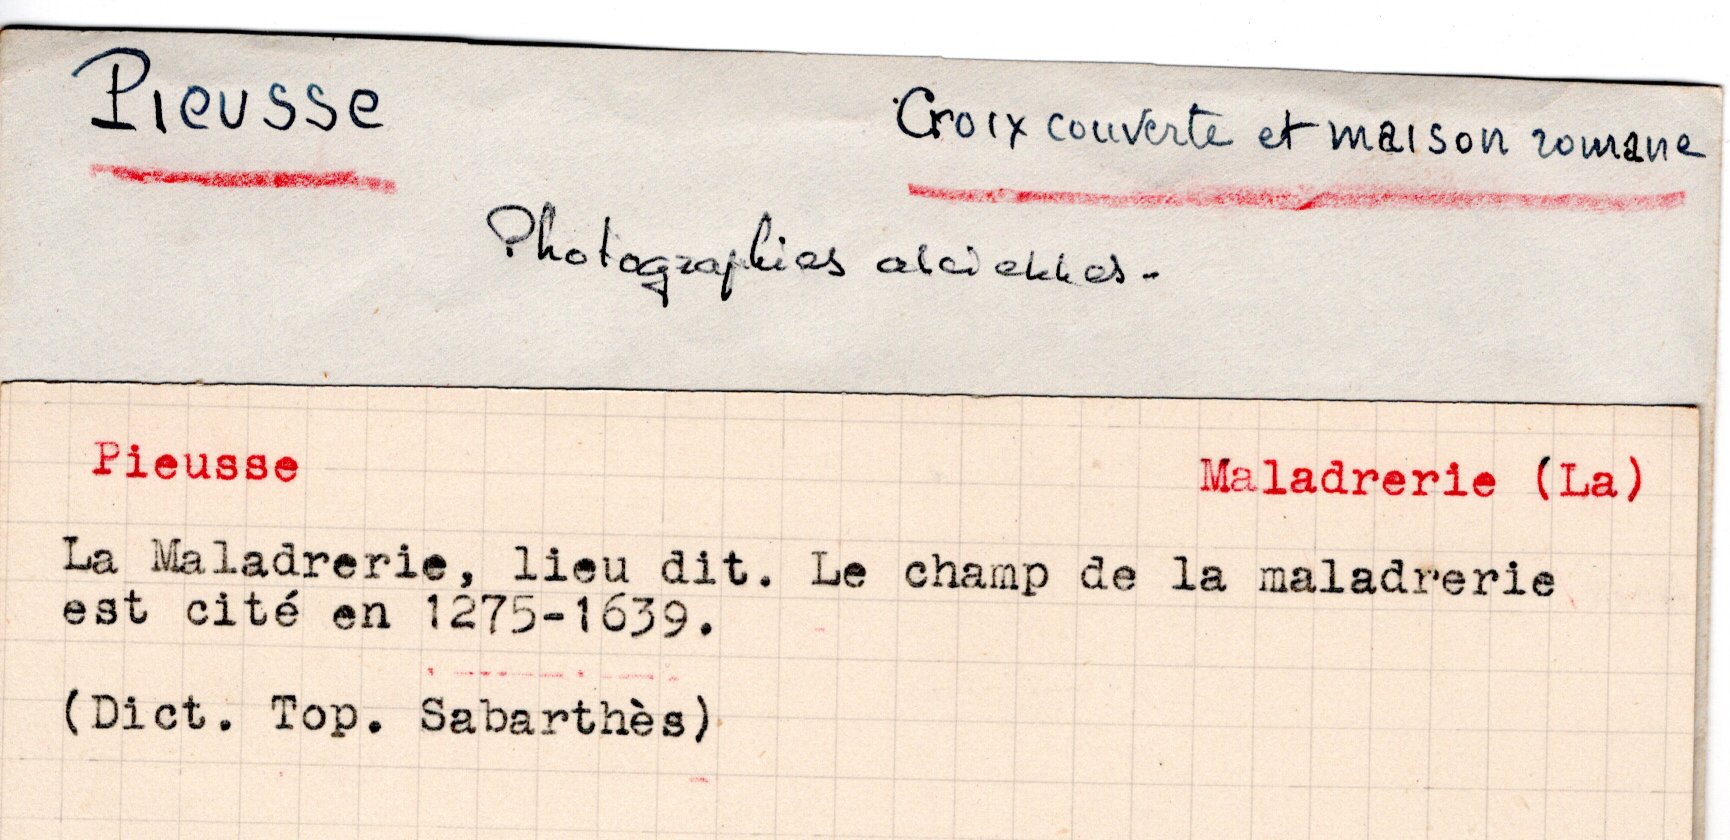 Pieusse
Croix couverte et maison romane
Photographies anciennes-
Pieusse
Maladrerie (La)
La Maladrerie, lieu dit. Le champ de la maladrerie
est cité en 1275-1639.
(Dict. Top. Sabarthès)